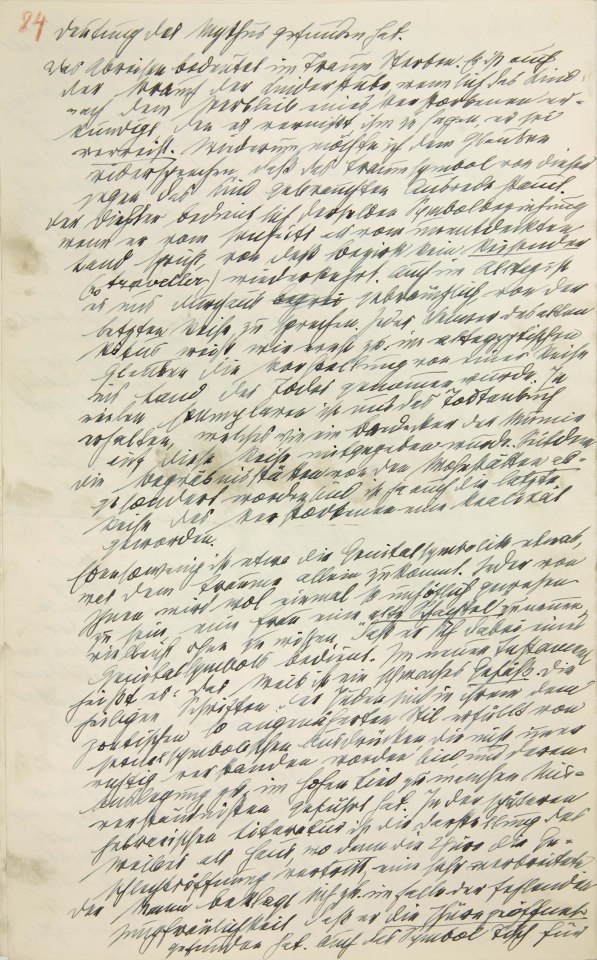 84
Deutung des Mythus gefunden hat.
Das Abreisen bedeutet im Traum Sterben. Es ist auch
der Brauch der Kinderstube, wenn sich das Kind
nach dem Verbleib eines Verstorbenen er-
kundigt, den es vermißt, ihm zu sagen, er sei
verreist. Wiederum möchte ich dem Glauben
widersprechen, daß das Traumsymbol von dieser
gegen das Kind gebrauchten Ausrede stamt.
Der Dichter bedient sich derselben Symbolbeziehung
wenn er vom Jenseits als vom unentdeckten
Land spricht, von deß Bezirk kein Reisender
(no traveller) wiederkehrt. Auch im Alltag ist
es uns durchaus gebräuchlich von der
letzten Reise zu sprechen. Jeder Kenner des alten
Ritus weiß, wie ernst zB. im altegyptischen
Glauben die Vorstellung von einer Reise
ins Land des Todes genommen wurde. In
vielen Exemplaren ist uns das Todtenbuch
erhalten, welches wie ein Baedecker der Mumie
auf diese Reise mitgegeben wurde. Seitdem
die Begräbnisstätten von den Wohnstätten ab-
gesondert worden sind, ist ja auch die letzte
Reise des Verstorbenen eine Realität
geworden.
Ebensowenig ist etwa die Genitalsymbolik etwas,
was dem Traume allein zukomt. Jeder von
Ihnen wird wol einmal so unhöflich gewesen
zu sein, eine Frau eine alte Schachtel zu nennen,
vielleicht ohne zu wissen, daß er sich dabei eines
Genitalsymbols bedient. Im neuen Testament
heißt es: das Weib ist ein schwaches Gefäß. Die
heiligen Schriften der Juden sind in ihrem dem
poetischen so angenäherten Stil erfüllt von
sexualsymbolischen Ausdrücken, die nicht immer
richtig verstanden worden sind und deren
Auslegung zB. im hohen Lied zu manchen Mis-
verständnissen geführt hat. In der späteren
hebräischen Literatur ist die Darstellung des
Weibes als Haus, wo dann die Thüre die Ge-
schlechtsöffnung vertritt, eine sehr verbreitete.
Der Mann beklagt sich zB. im Falle der fehlenden
Jungfräulichkeit, daß er die Thüre geöffnet
gefunden hat. Auch das Symbol Tisch für